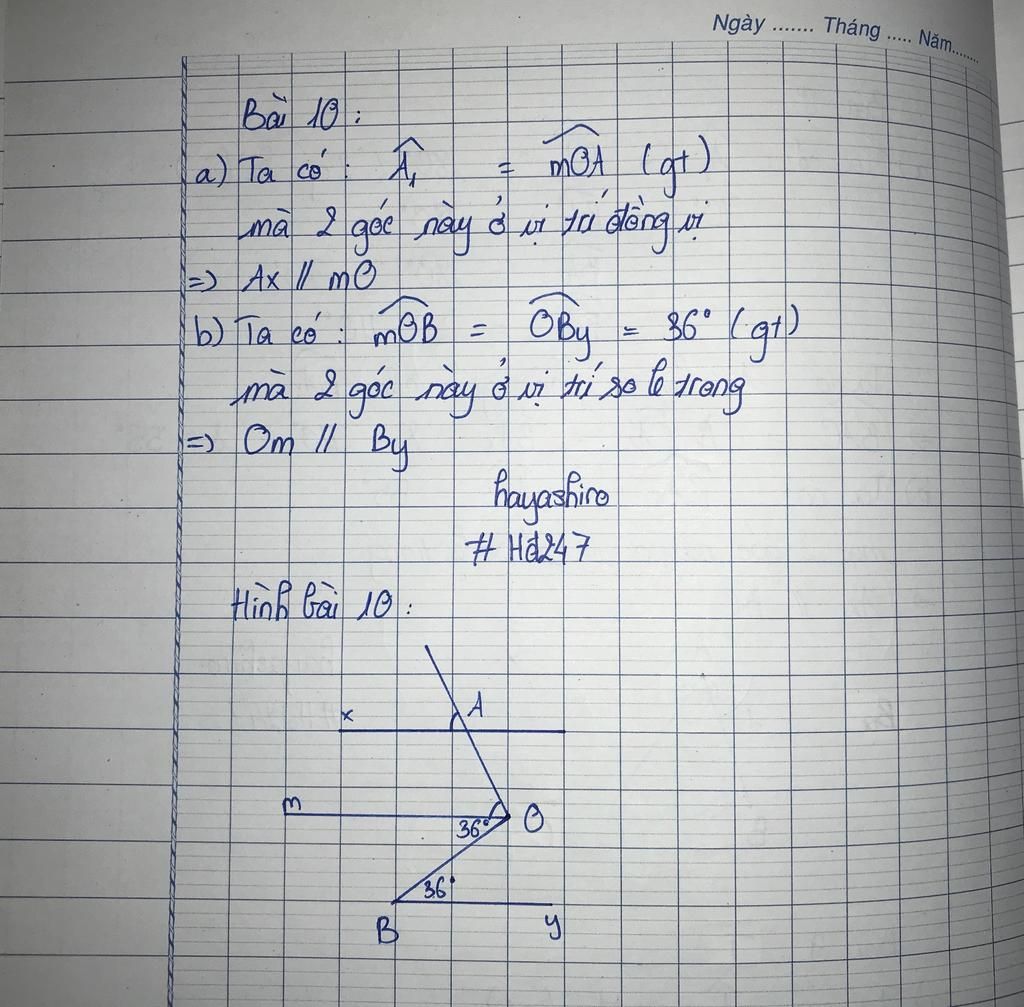 Ngày ....... Tháng ..... Năm.......
Bài 10 :
a) Ta có : A₁ = mOA (gt)
mà 2 góc này ở vị trí đồng vị
=> Ax // mO
b) Ta có : mOB = OBy = 36° (gt)
mà 2 góc này ở vị trí so le trong
=> Om // By
hayashiro
# Hđ247
Hình bài 10 :
x A
m 36° O
36°
B y